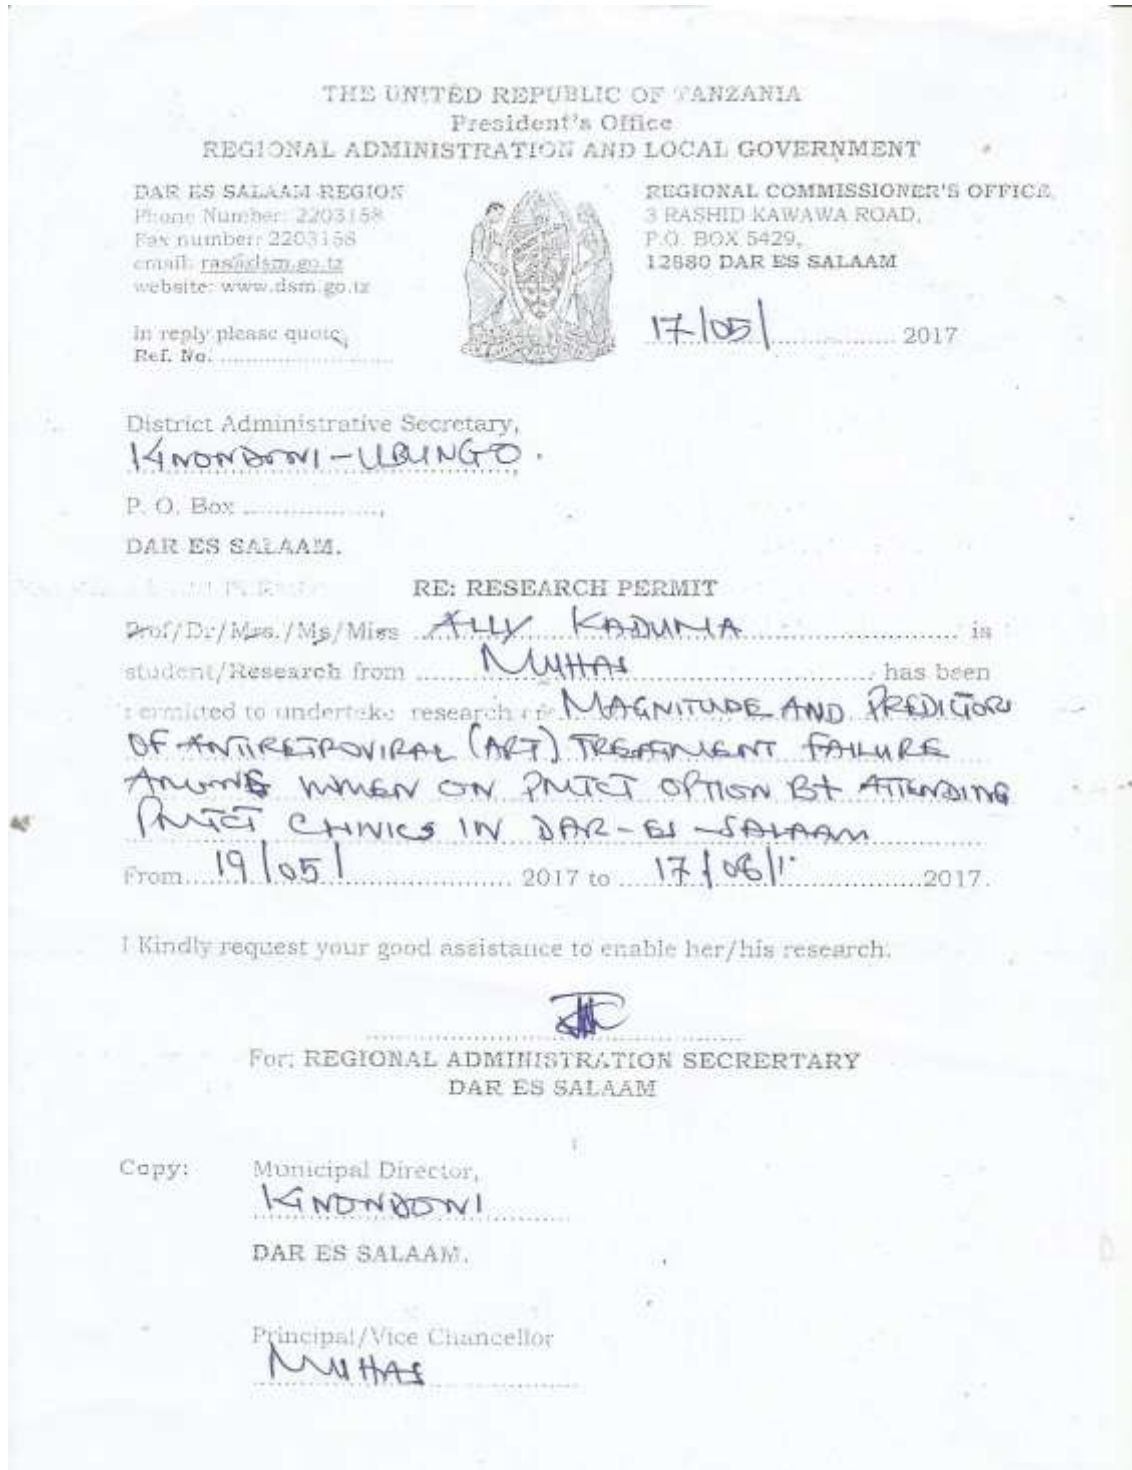 THE UNITED REPUBLIC OF TANZANIA
President's Office
REGIONAL ADMINISTRATION AND LOCAL GOVERNMENT
DAR ES SALAAM REGION
Phone Number: 2203158
Fax number: 2203158
email: ras@dsm.go.tz
website: www.dsm.go.tz
In reply please quote,
Ref. No. ........................
REGIONAL COMMISSIONER'S OFFICE,
3 RASHID KAWAWA ROAD,
P.O. BOX 5429,
12880 DAR ES SALAAM
17/05/ ............ 2017
District Administrative Secretary,
KINONDONI - UBUNGO.
P. O. Box ..................,
DAR ES SALAAM.
RE: RESEARCH PERMIT
Prof/Dr/Mrs./Ms/Miss ALLY KADUMA is
student/Research from MUHAS has been
permitted to undertake research on MAGNITUDE AND PREDICTORS
OF ANTIRETROVIRAL (ART) TREATMENT FAILURE
AMONG WOMEN ON PMTCT OPTION B+ ATTENDING
PMTCT CLINICS IN DAR-ES-SALAAM
From 19/05/ 2017 to 17/08/ 2017.
I Kindly request your good assistance to enable her/his research.
For: REGIONAL ADMINISTRATION SECRERTARY
DAR ES SALAAM
Copy: Municipal Director,
KINONDONI
DAR ES SALAAM.
Principal/Vice Chancellor
MUHAS